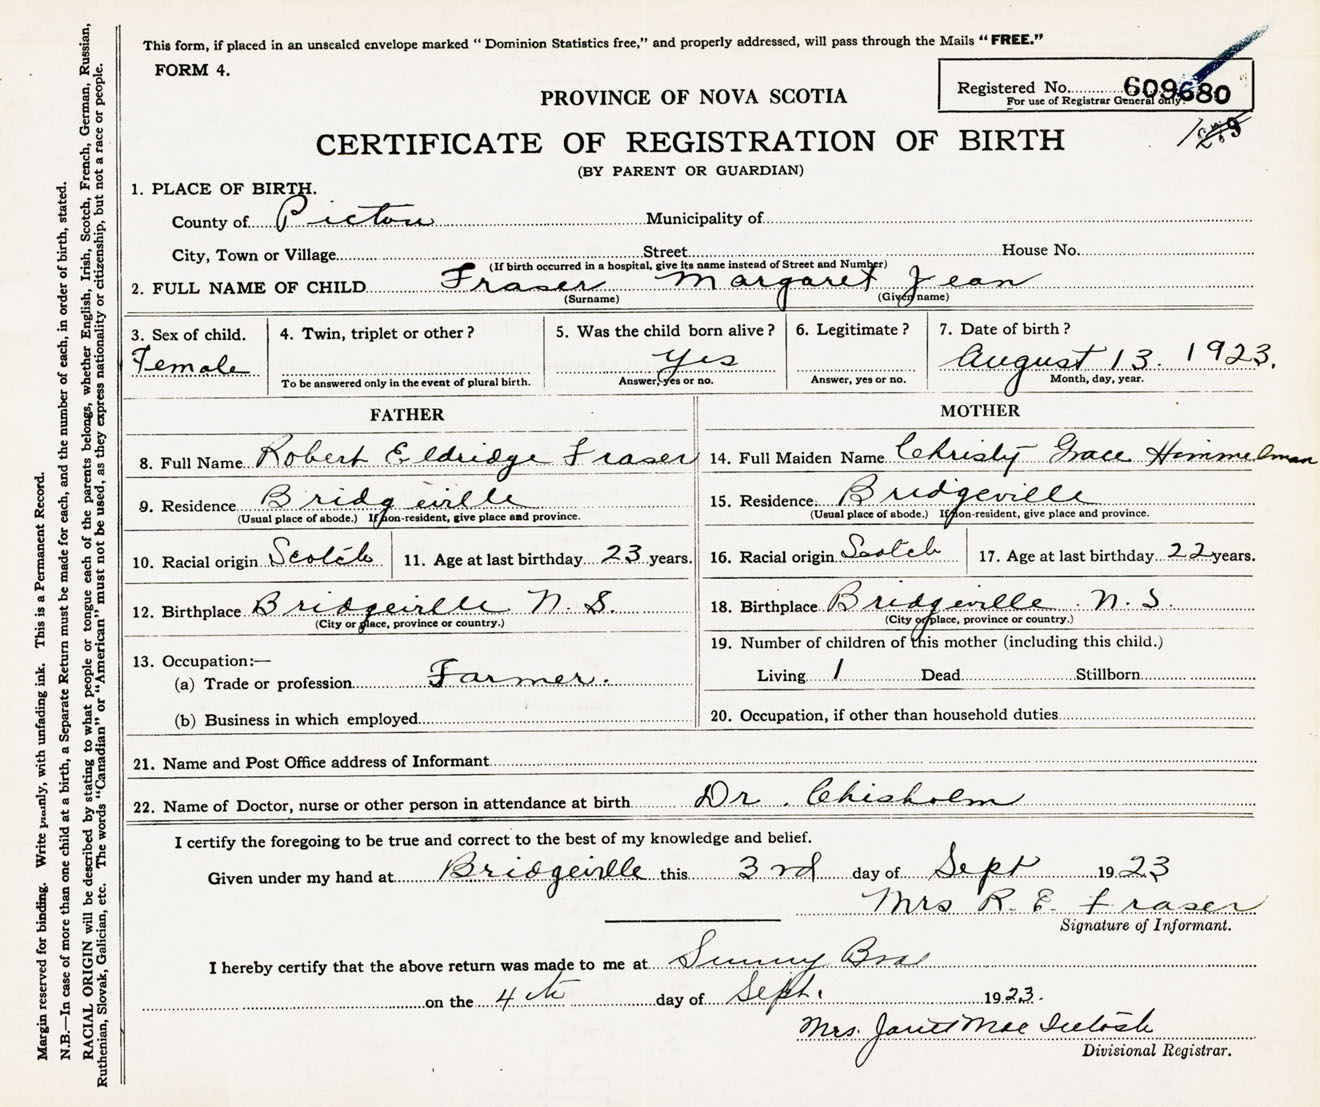 This form, if placed in an unsealed envelope marked "Dominion Statistics free," and properly addressed, will pass through the Mails "FREE."
FORM 4.
Registered No. 609680
For use of Registrar General only.
PROVINCE OF NOVA SCOTIA
CERTIFICATE OF REGISTRATION OF BIRTH
(BY PARENT OR GUARDIAN)
1. PLACE OF BIRTH.
County of Pictou Municipality of
City, Town or Village Street House No.
(If birth occurred in a hospital, give its name instead of Street and Number)
2. FULL NAME OF CHILD Fraser Margaret Jean
(Surname) (Given name)
3. Sex of child. 4. Twin, triplet or other? 5. Was the child born alive? 6. Legitimate? 7. Date of birth?
Female Yes August 13. 1923.
To be answered only in the event of plural birth. Answer, yes or no. Answer, yes or no. Month, day, year.
FATHER MOTHER
8. Full Name Robert Eldridge Fraser 14. Full Maiden Name Christy Grace Himmelman
9. Residence Bridgeville 15. Residence. Bridgeville
(Usual place of abode.) If non-resident, give place and province. (Usual place of abode.) If non-resident, give place and province.
10. Racial origin Scotch 11. Age at last birthday 23 years. 16. Racial origin Scotch 17. Age at last birthday 22 years.
12. Birthplace Bridgeville N. S. 18. Birthplace Bridgeville N. S.
(City or place, province or country.) (City or place, province or country.)
13. Occupation:— 19. Number of children of this mother (including this child.)
(a) Trade or profession Farmer. Living 1 Dead Stillborn
(b) Business in which employed 20. Occupation, if other than household duties
21. Name and Post Office address of Informant
22. Name of Doctor, nurse or other person in attendance at birth Dr. Chisholm
I certify the foregoing to be true and correct to the best of my knowledge and belief.
Given under my hand at Bridgeville this 3rd day of Sept 1923
Mrs R. E. Fraser
Signature of Informant.
I hereby certify that the above return was made to me at Sunny Brae
on the 4th day of Sept. 1923.
Mrs. Janet MacIntosh
Divisional Registrar.
Margin reserved for binding. Write plainly, with unfading ink. This is a Permanent Record.
N.B.—In case of more than one child at a birth, a Separate Return must be made for each, and the number of each, in order of birth, stated.
RACIAL ORIGIN will be described by stating to what people or tongue each of the parents belongs, whether English, Irish, Scotch, French, German, Russian,
Ruthenian, Slovak, Galician, etc. The words "Canadian" or "American" must not be used, as they express nationality or citizenship, but not a race or people.